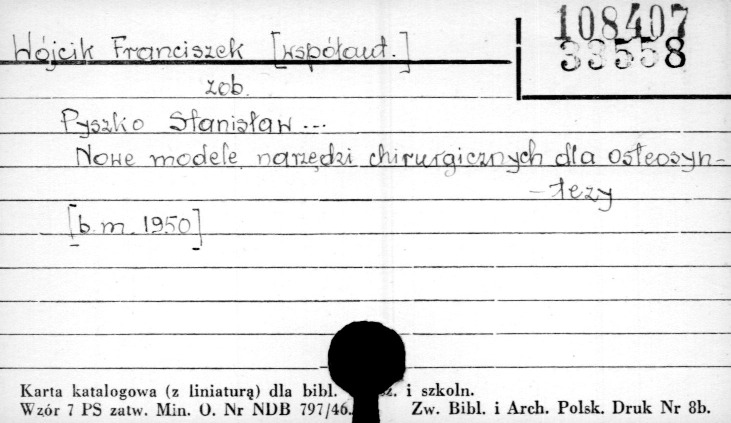 108407
33558
Wójcik Franciszek [współaut.]
zob.
Pyszko Stanisław ...
Nowe modele narzędzi chirurgicznych dla osteosyn-
-tezy
[b. m. 1950]
Karta katalogowa (z liniaturą) dla bibl. i szkoln.
Wzór 7 PS zatw. Min. O. Nr NDB 797/46. Zw. Bibl. i Arch. Polsk. Druk Nr 8b.